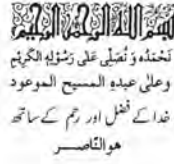 بسم الله الرحمن الرحيم
نَحْمَدُہٗ وَ نُصَلِّی عَلٰی رَسُوْلِهِ الْکَرِیْمِ
وعلٰی عبدہِ المسیح الموعود
خدا کے فضل اور رحم کے ساتھ
ھو النّاصــر